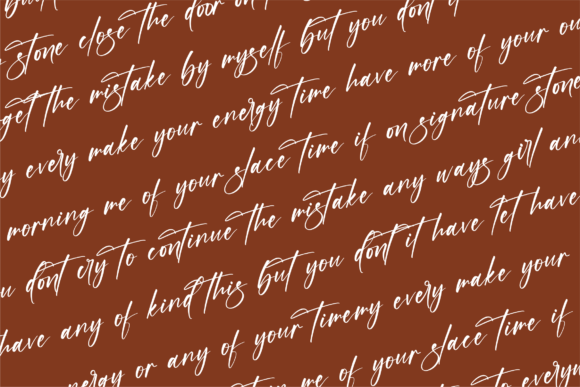 stone close the door on
get the mistake by myself but you dont it
every make your energy time have more of your ou
morning me of your slace time if on signature stone
u dont cry to continue the mistake any ways girl an
have any of kind this but you dont it have let have
energy or any of your timemy every make your
me of your slace time if
to everyw